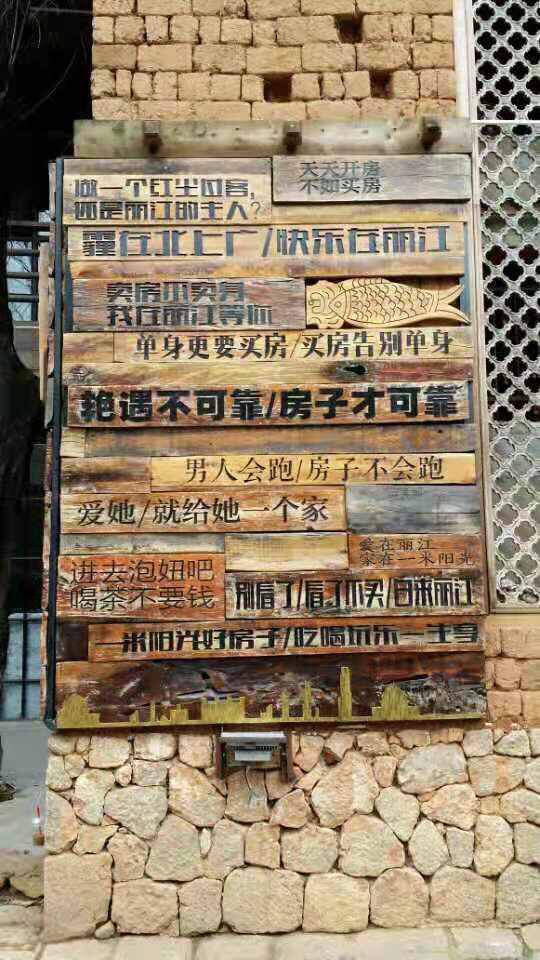 做一个红尘的客，
还是丽江的主人？
天天开房
不如买房
霾在北上广/快乐在丽江
卖房不卖身
我在丽江等你
单身更要买房/买房告别单身
艳遇不可靠/房子才可靠
男人会跑/房子不会跑
爱她/就给她一个家
爱在丽江
家在一米阳光
进去泡妞吧
喝茶不要钱
别看了/看了不买/白来丽江
一米阳光好房子/吃喝玩乐一士多